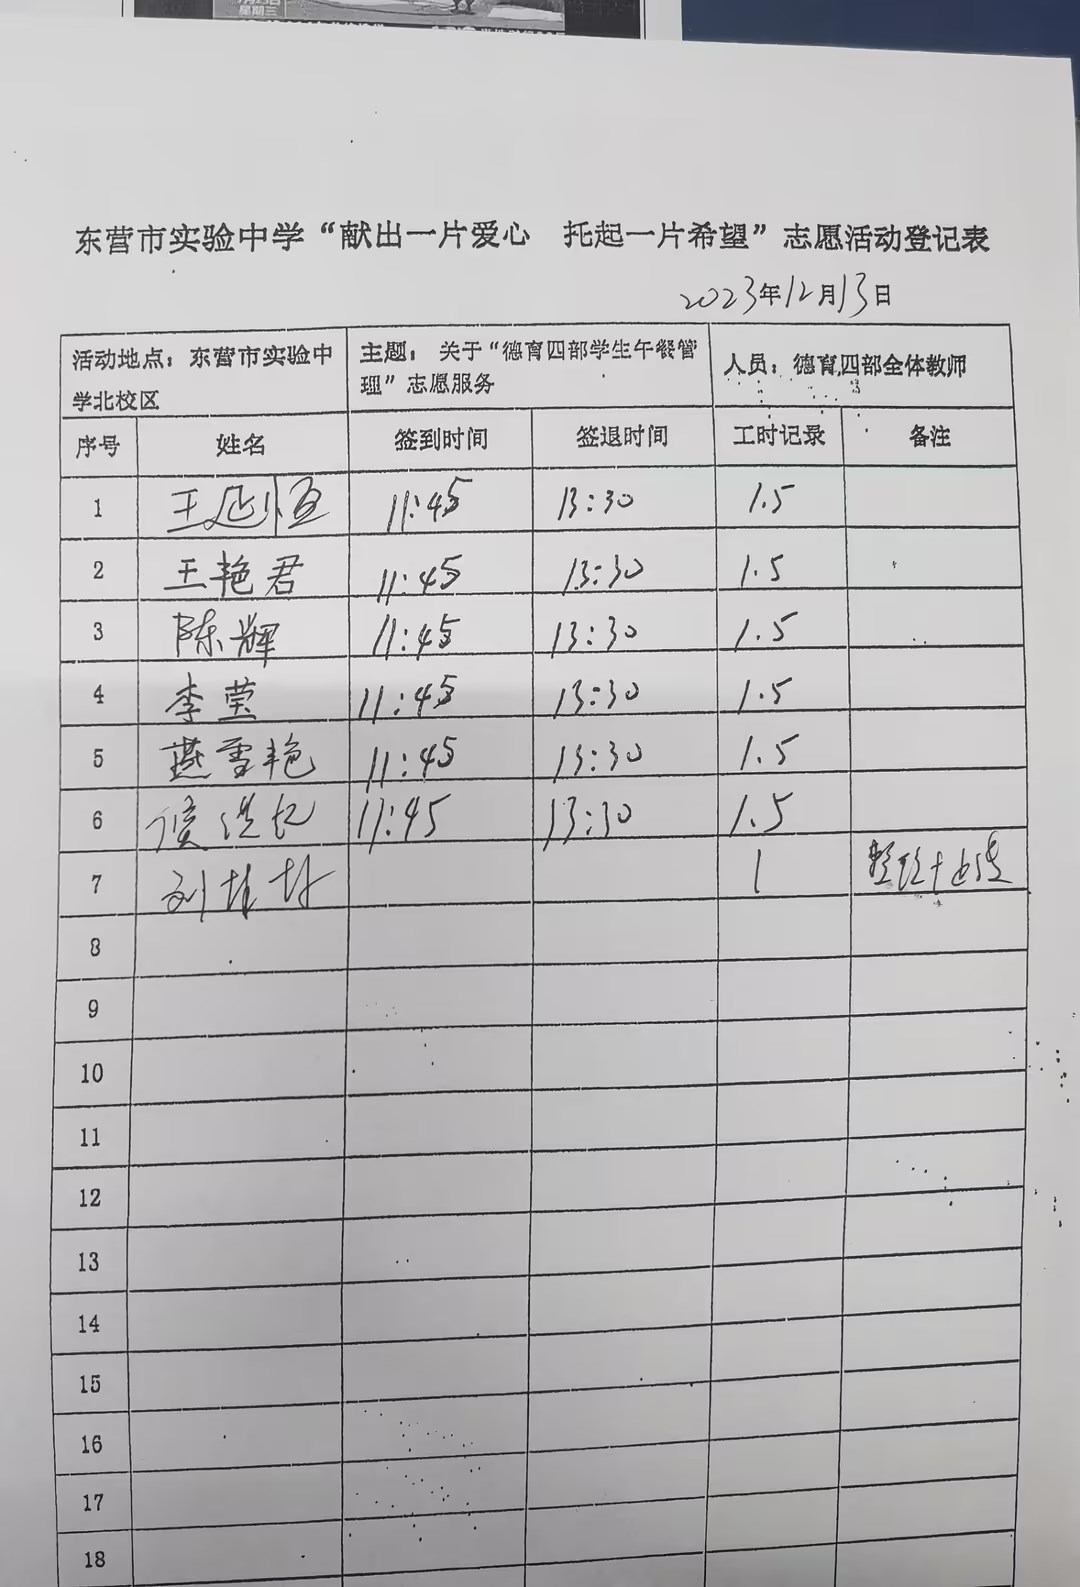 星期三
东营市实验中学“献出一片爱心 托起一片希望”志愿活动登记表
2023年12月13日
活动地点：东营市实验中学北校区 主题：关于“德育四部学生午餐管理”志愿服务 人员：德育四部全体教师
序号 姓名 签到时间 签退时间 工时记录 备注
1 王延恒 11:45 13:30 1.5
2 王艳君 11:45 13:30 1.5
3 陈辉 11:45 13:30 1.5
4 李莹 11:45 13:30 1.5
5 燕雪艳 11:45 13:30 1.5
6 11:45 13:30 1.5
7 刘 1
8
9
10
11
12
13
14
15
16
17
18